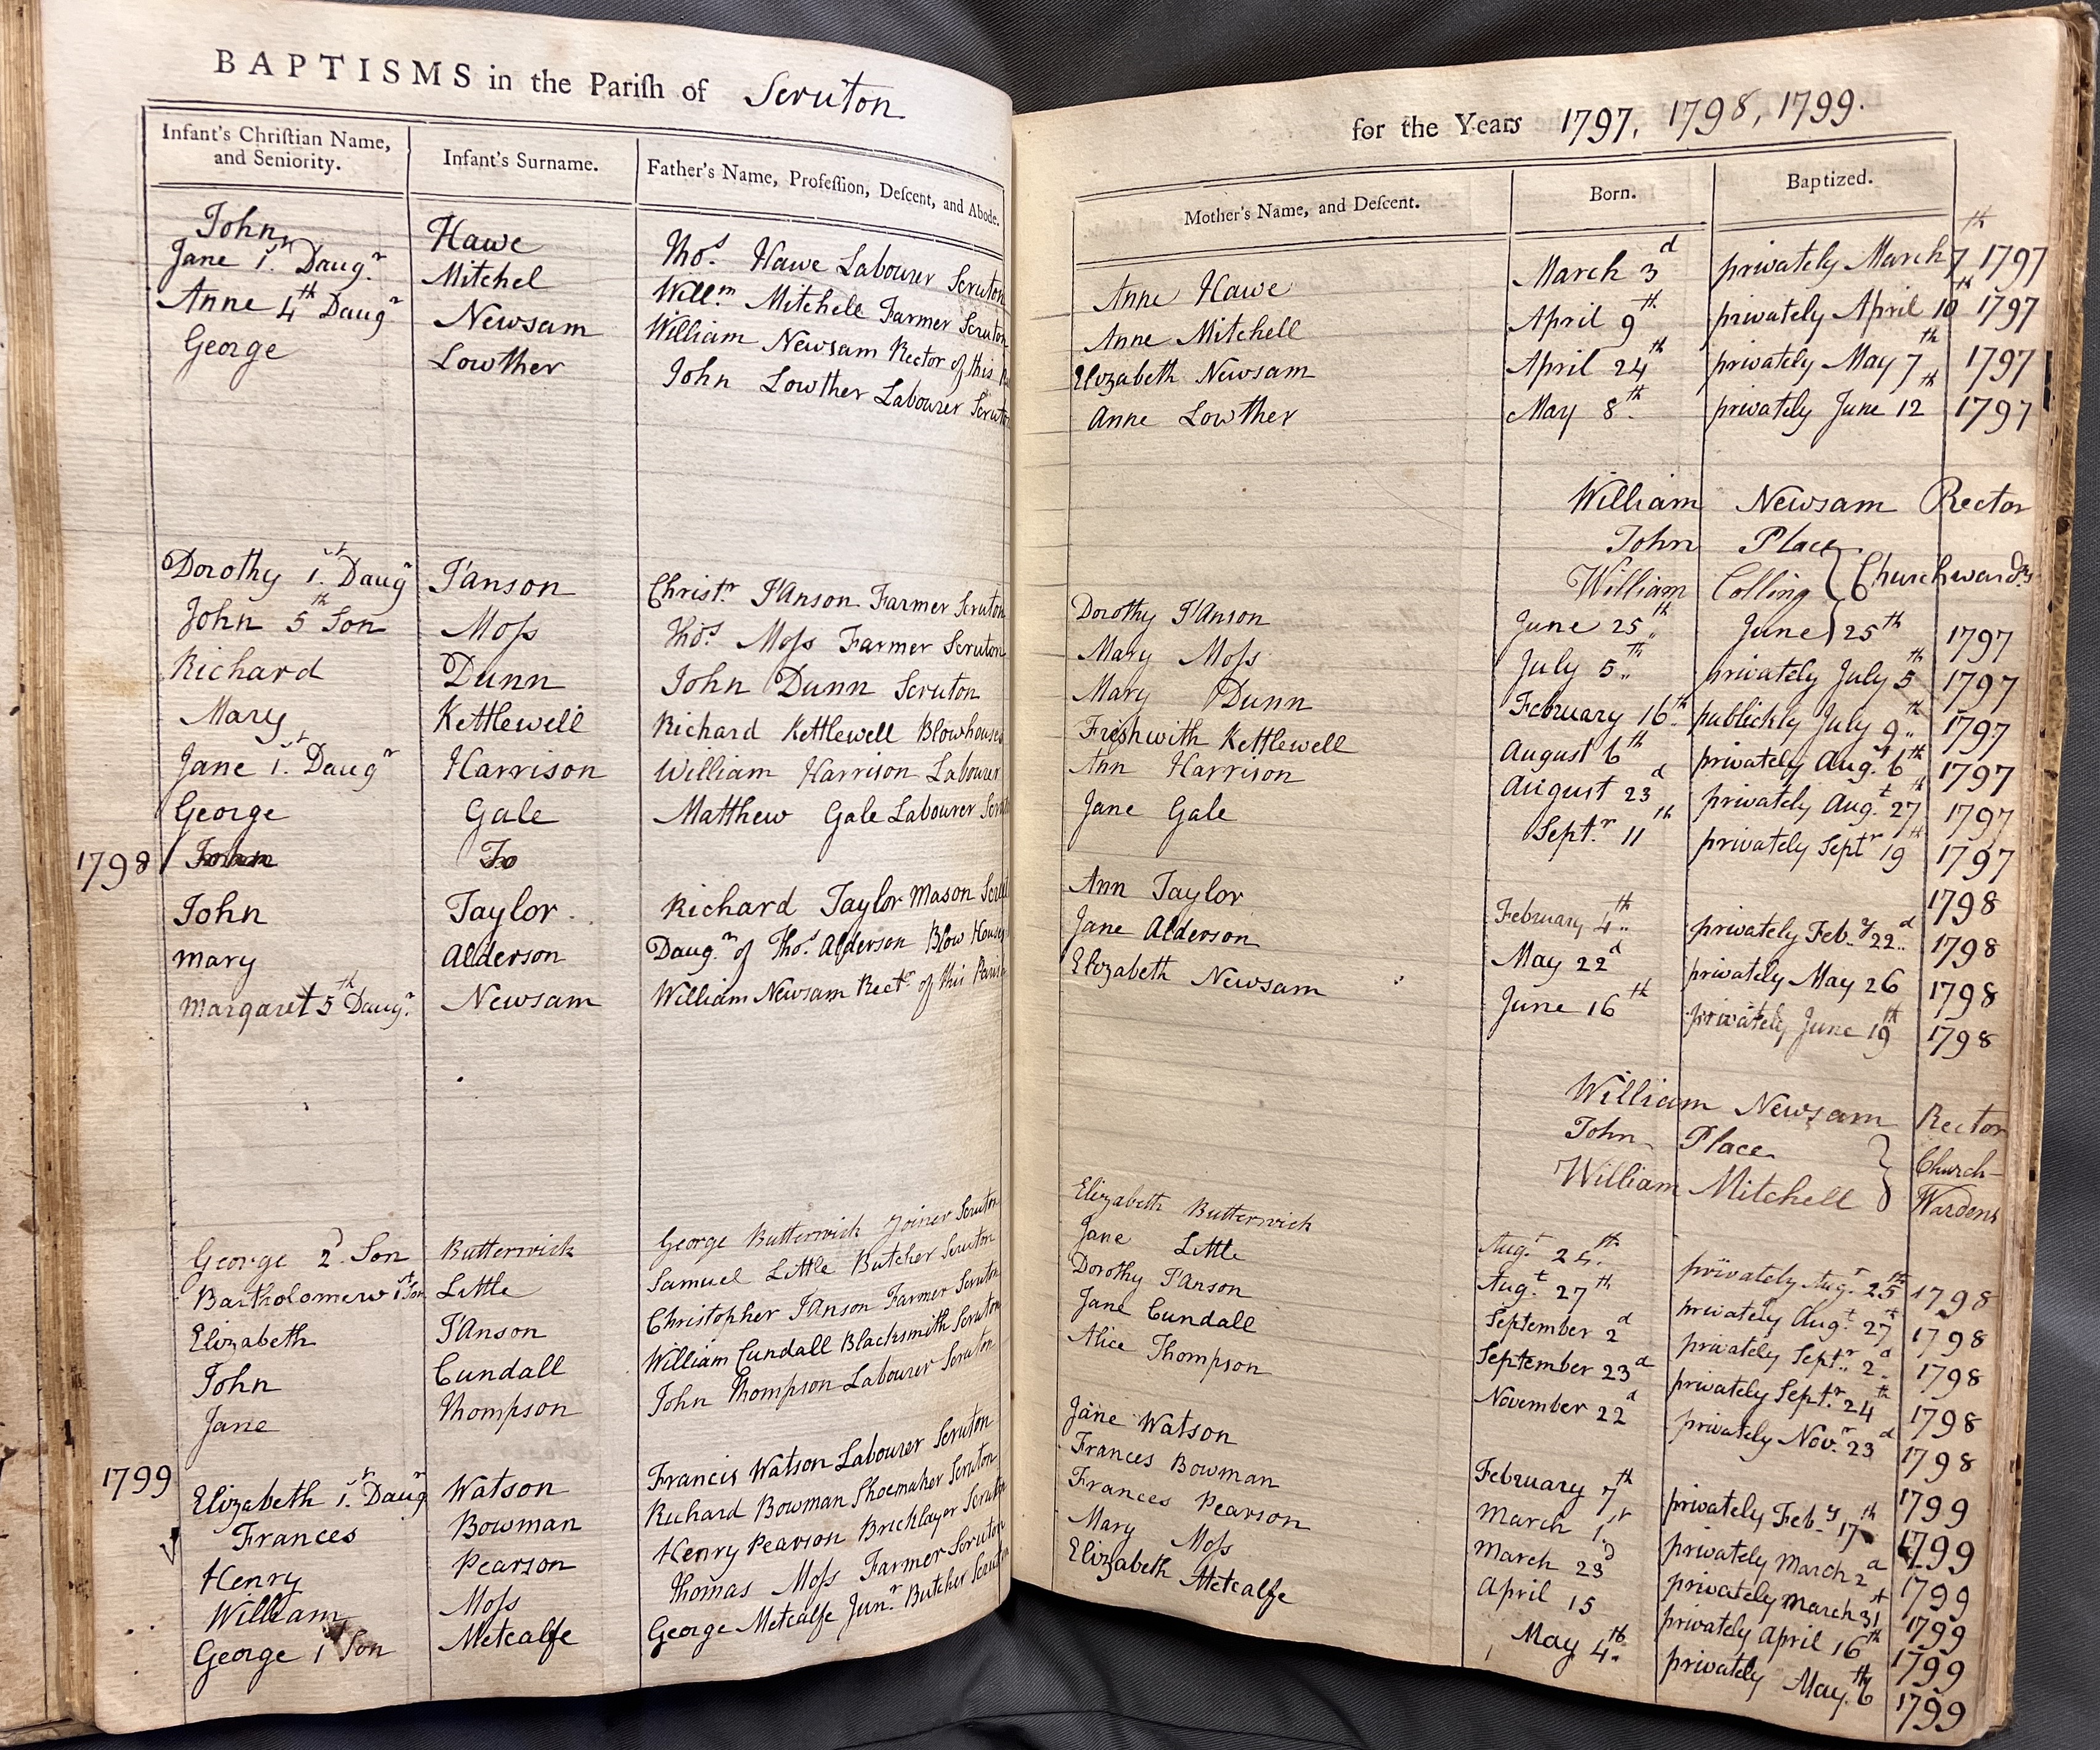 BAPTISMS in the Pariſh of Scruton
Infant's Chriſtian Name, and Seniority. Infant's Surname. Father's Name, Profeſſion, Deſcent, and Abode.
John Hawe Thos. Hawe Labourer Scruton
Jane 1.st Daugr. Mitchel Willm. Mitchell Farmer Scruton
Anne 4th Daugr Newsam William Newsam Rector of this
George Lowther John Lowther Labourer Scruton
Dorothy 1.st Daugr I'Anson Christr. I'Anson Farmer Scruton
John 5th Son Moſs Thos. Moſs Farmer Scruton
Richard Dunn John Dunn Scruton
Mary Kettlewell Richard Kettlewell Blowhouses
Jane 1.st Daugr Harrison William Harrison Labourer
George Gale Matthew Gale Labourer
1798 John To
John Taylor Richard Taylor Mason
Mary Alderson Daugr. of Thos. Alderson Blow Houses
Margaret 5th Daugr. Newsam William Newsam Rectr. of this Parish
George 2d Son Butterwick George Butterwick Joiner Scruton
Bartholomew 1st Son Little Samuel Little Butcher Scruton
Elizabeth I'Anson Christopher I'Anson Farmer Scruton
John Cundall William Cundall Blacksmith Scruton
Jane Thompson John Thompson Labourer Scruton
1799
Elizabeth 1.st Daugr Watson Francis Watson Labourer Scruton
Frances Bowman Richard Bowman Shoemaker Scruton
Henry Pearson Henry Pearson Bricklayer Scruton
William Moſs Thomas Moſs Farmer Scruton
George 1st Son Metcalfe George Metcalfe Junr. Butcher Scruton
for the Years 1797, 1798, 1799.
Mother's Name, and Deſcent. Born. Baptized.
Anne Hawe March 3d privately March 7th 1797
Anne Mitchell April 9th privately April 10th 1797
Elizabeth Newsam April 24th privately May 7th 1797
Anne Lowther May 8th. privately June 12th 1797
William Newsam Rector
John Place
William Colling } Churchwardns
Dorothy I'Anson June 25th June 25th 1797
Mary Moſs July 5th privately July 5th 1797
Mary Dunn February 16th. publickly July 9th 1797
Frishwith Kettlewell August 6th privately Augt. 6th 1797
Ann Harrison August 23d privately Augt. 27th 1797
Jane Gale Septr. 11th privately Septr 19th 1797
1798
Ann Taylor February 4th privately Feby. 22d 1798
Jane Alderson May 22d privately May 26 1798
Elizabeth Newsam June 16th privately June 19th 1798
William Newsam Rector
John Place
William Mitchell } Church-Wardens
Elizabeth Butterwick Augt. 24th. privately Augt. 25th 1798
Jane Little Augt. 27th privately Augt. 27th 1798
Dorothy I'Anson September 2d privately Septr. 2d 1798
Jane Cundall September 23d privately Septr. 24th 1798
Alice Thompson November 22d privately Novr. 23d 1798
Jane Watson February 7th privately Feby 17th 1799
Frances Bowman March 1st privately March 2d 1799
Frances Pearson March 23d privately March 31st 1799
Mary Moſs April 15 privately April 16th 1799
Elizabeth Metcalfe May 4th. privately May 6th 1799
1799